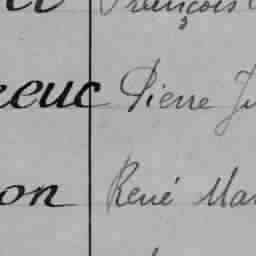 François
euc Pierre Ju
on René Mar